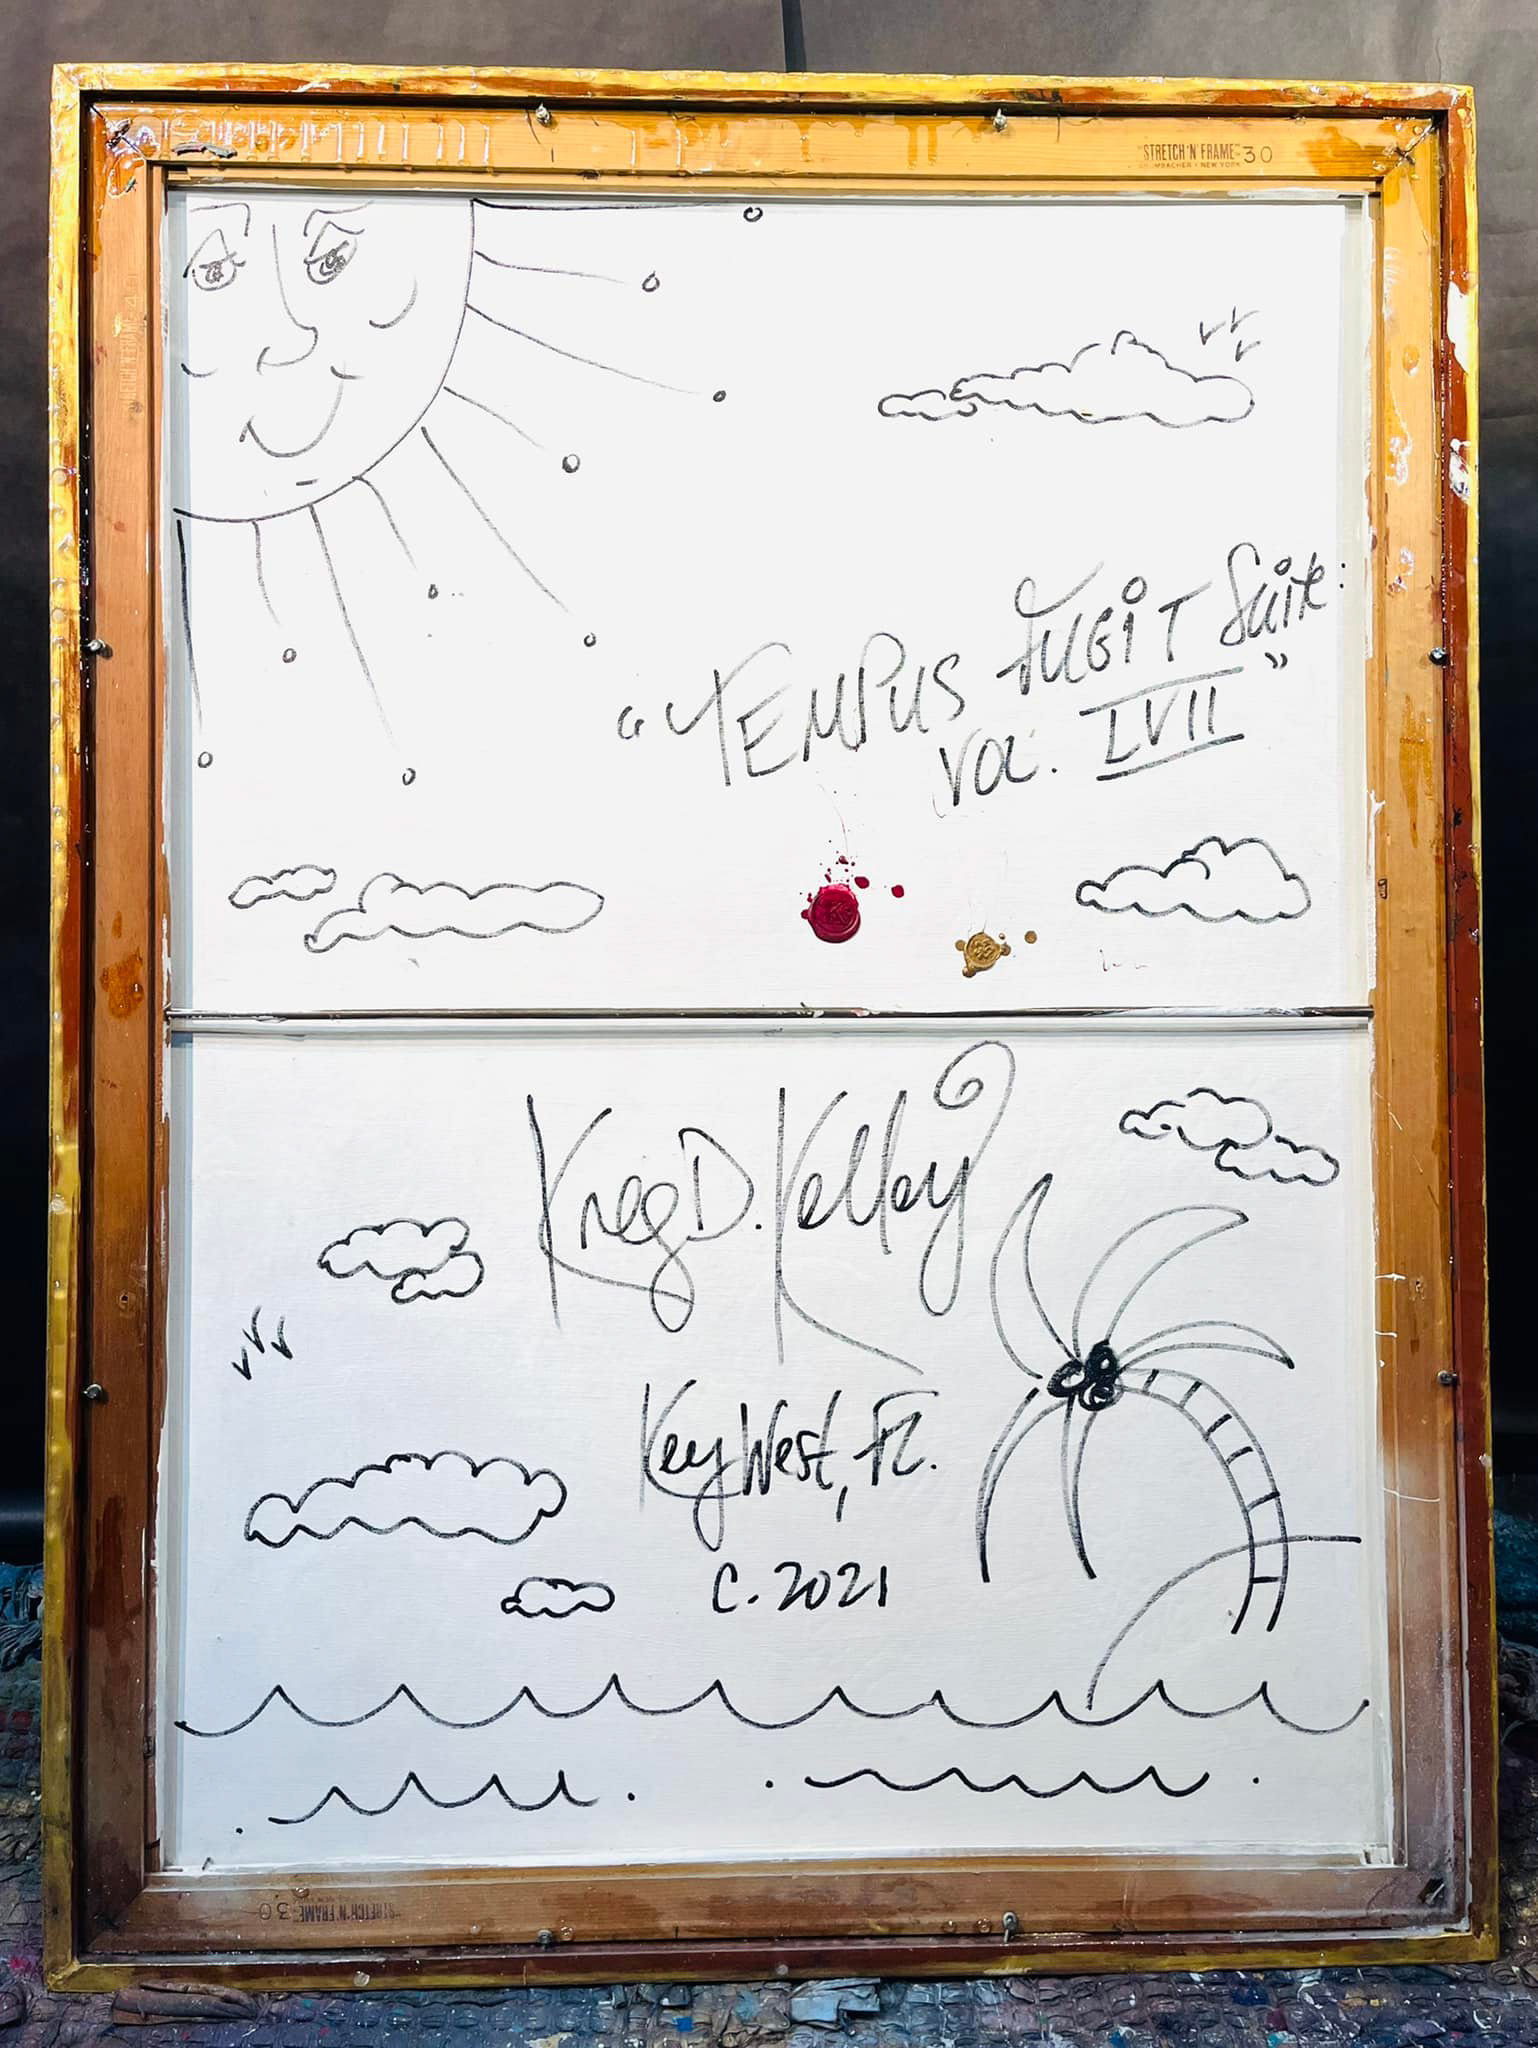 "STRETCH 'N' FRAME" 30
GRUMBACHER • NEW YORK
STRETCH 'N' FRAME
"TEMPUS FUGIT Suite:
VOL. LVII"
K
Kreg D. Kelley
Key West, FL.
C. 2021
"STRETCH 'N' FRAME" 30